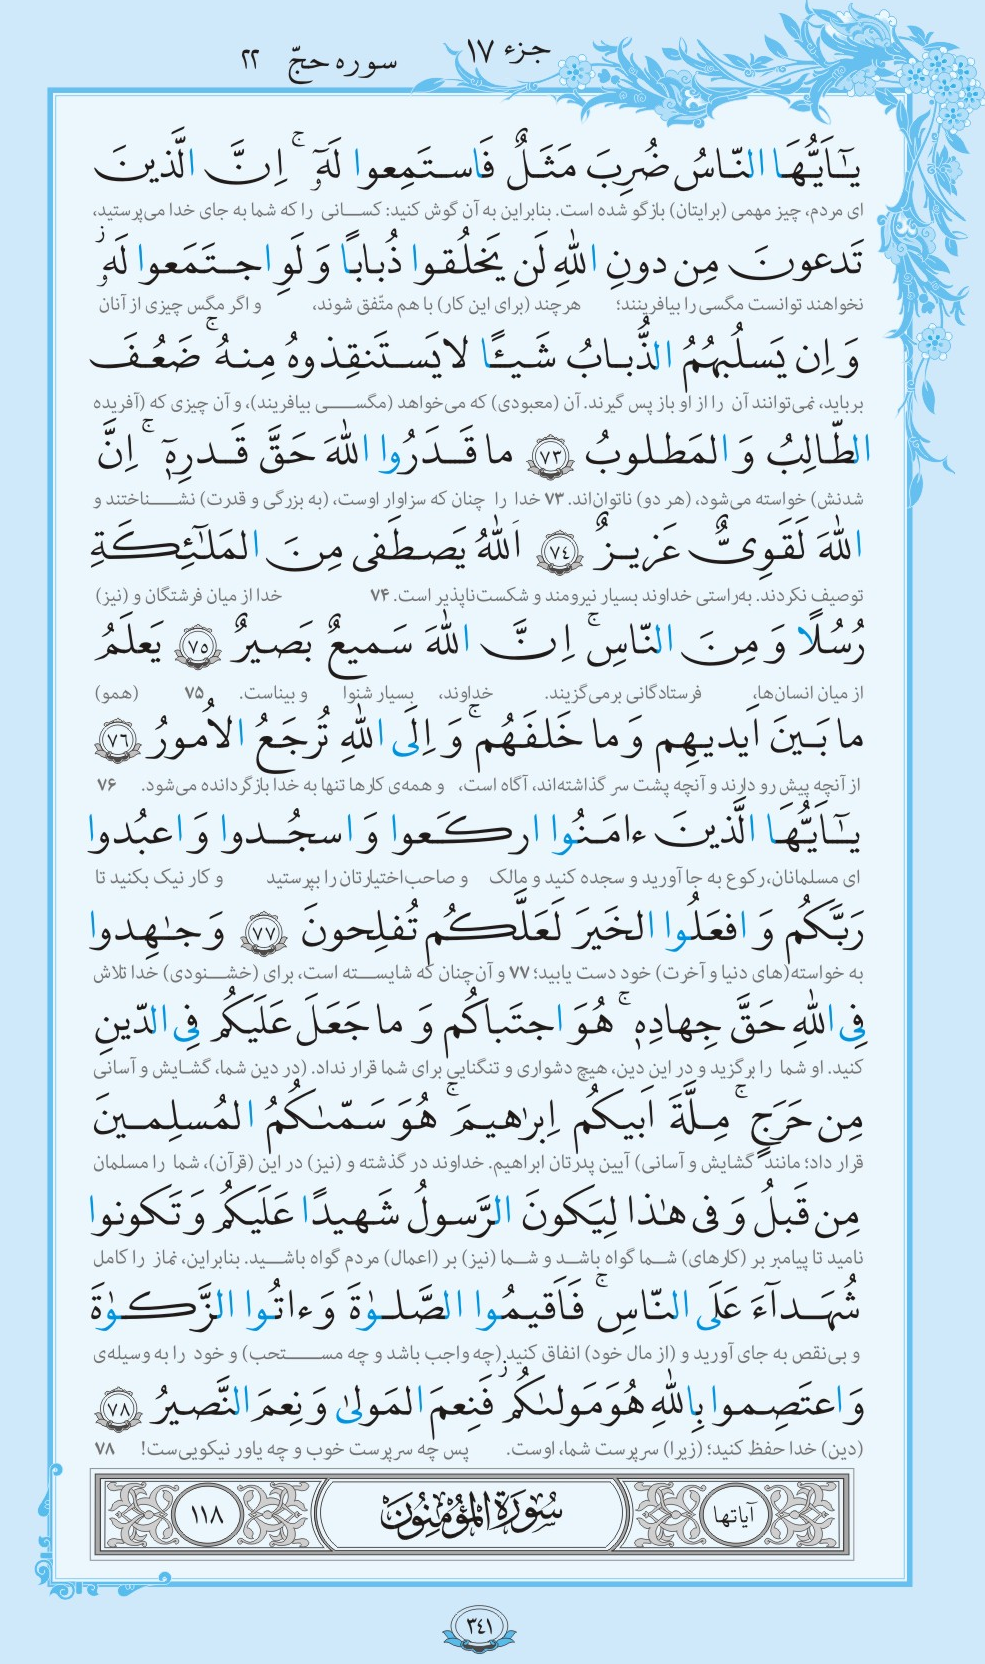 جزء ۱۷
سوره حجّ ۲۲
يـٰٓاَيُّهَا النّاسُ ضُرِبَ مَثَلٌ فَاستَمِعوا لَهٗٓ ۚ اِنَّ الَّذينَ
ای مردم، چیز مهمی (برایتان) بازگو شده است. بنابراین به آن گوش کنید: کسانی را که شما به جای خدا می‌پرستید،
تَدعونَ مِن دونِ اللّٰهِ لَن يَخلُقوا ذُبابًا وَ لَوِ اجتَمَعوا لَهٗ ۖز
نخواهند توانست مگسی را بیافرینند؛ هرچند (برای این کار) با هم متّفق شوند، و اگر مگس چیزی از آنان
وَ اِن يَسلُبهُمُ الذُّبابُ شَيـًٔا لايَستَنقِذوهُ مِنهُ ۚ ضَعُفَ
برباید، نمی‌توانند آن را از او باز پس گیرند. آن (معبودی) که می‌خواهد (مگسی بیافریند)، و آن چیزی که (آفریده
الطّالِبُ وَ المَطلوبُ ۷۳ ما قَدَرُوا اللّٰهَ حَقَّ قَدرِهٖٓ ۚ اِنَّ
شدنش) خواسته می‌شود، (هر دو) ناتوان‌اند. ۷۳ خدا را چنان که سزاوار اوست، (به بزرگی و قدرت) نشناختند و
اللّٰهَ لَقَوِىٌّ عَزيزٌ ۷۴ اَللّٰهُ يَصطَفى مِنَ المَلٰٓئِكَةِ
توصیف نکردند. به‌راستی خداوند بسیار نیرومند و شکست‌ناپذیر است. ۷۴ خدا از میان فرشتگان و (نیز)
رُسُلًا وَ مِنَ النّاسِ ۚ اِنَّ اللّٰهَ سَميعٌ بَصيرٌ ۷۵ يَعلَمُ
از میان انسان‌ها، فرستادگانی برمی‌گزیند. خداوند، بسیار شنوا و بیناست. ۷۵ (همو)
ما بَينَ اَيديهِم وَ ما خَلفَهُم ۚ وَ اِلَى اللّٰهِ تُرجَعُ الاُمورُ ۷۶
از آنچه پیش رو دارند و آنچه پشت سر گذاشته‌اند، آگاه است، و همه‌ی کارها تنها به خدا بازگردانده می‌شود. ۷۶
يـٰٓاَيُّهَا الَّذينَ ءامَنُوا اركَعوا وَ اسجُدوا وَ اعبُدوا
ای مسلمانان، رکوع به جا آورید و سجده کنید و مالک و صاحب‌اختیارتان را بپرستید و کار نیک بکنید تا
رَبَّكُم وَ افعَلُوا الخَيرَ لَعَلَّكُم تُفلِحونَ ۷۷ وَ جـٰهِدوا
به خواسته(های دنیا و آخرت) خود دست یابید؛ ۷۷ و آن‌چنان که شایسته است، برای (خشنودی) خدا تلاش
فِى اللّٰهِ حَقَّ جِهادِهٖ ۚ هُوَ اجتَباكُم وَ ما جَعَلَ عَلَيكُم فِى الدّينِ
کنید. او شما را برگزید و در این دین، هیچ دشواری و تنگنایی برای شما قرار نداد. (در دین شما، گشایش و آسانی
مِن حَرَجٍ ۚ مِلَّةَ اَبيكُم اِبرٰهيمَ ۚ هُوَ سَمّىٰكُمُ المُسلِمينَ
قرار داد؛ مانند گشایش و آسانی) آیین پدرتان ابراهیم. خداوند در گذشته و (نیز) در این (قرآن)، شما را مسلمان
مِن قَبلُ وَ فى هـٰذا لِيَكونَ الرَّسولُ شَهيدًا عَلَيكُم وَ تَكونوا
نامید تا پیامبر بر (کارهای) شما گواه باشد و شما (نیز) بر (اعمال) مردم گواه باشید. بنابراین، نماز را کامل
شُهَدآءَ عَلَى النّاسِ ۚ فَاَقيمُوا الصَّلوٰةَ وَ ءاتُوا الزَّكوٰةَ
و بی‌نقص به جای آورید و (از مال خود) انفاق کنید (چه واجب باشد و چه مستحب) و خود را به وسیله‌ی
وَ اعتَصِموا بِاللّٰهِ هُوَ مَولىٰكُم ۖز فَنِعمَ المَولىٰ وَ نِعمَ النَّصيرُ ۷۸
(دین) خدا حفظ کنید؛ (زیرا) سرپرست شما، اوست. پس چه سرپرست خوب و چه یاور نیکویی‌ست! ۷۸
آیاتها سُورَةُ المُؤْمِنُونَ ۱۱۸
۳٤۱